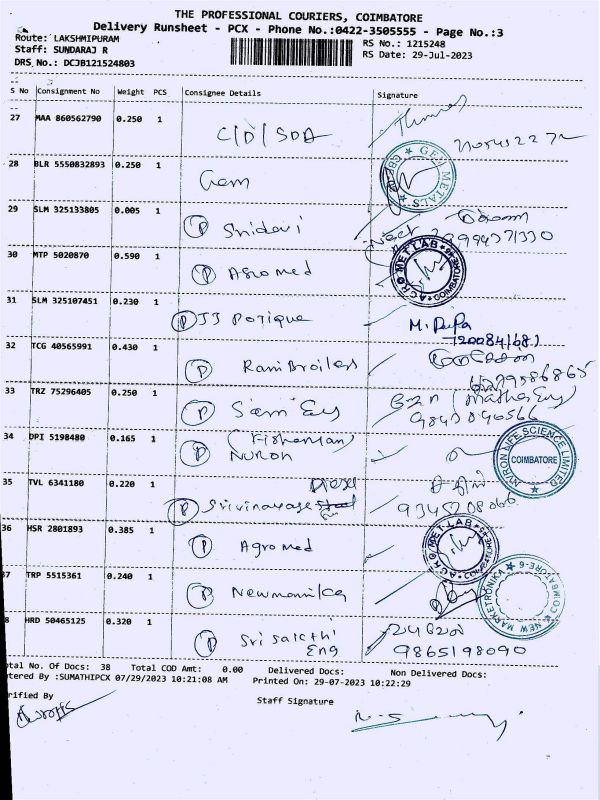 THE PROFESSIONAL COURIERS, COIMBATORE
Delivery Runsheet - PCX - Phone No.:0422-3505555 - Page No.:3
Route: LAKSHMIPURAM
RS No.: 1215248
Staff: SUNDARAJ R
RS Date: 29-Jul-2023
DRS No.: DCJB121524803
S No Consignment No Weight PCS Consignee Details Signature
27 MAA 860562790 0.250 1 C/D/SDA
28 BLR 5550832893 0.250 1 Gem
GEM METALS
29 SLM 325133805 0.005 1 P Sridevi
30 MTP 5020870 0.590 1 P Agromed
ACRO METLAB COIMBATORE
31 SLM 325107451 0.230 1 P JJ Potique
M. Pupa
7200841681
32 TCG 40565991 0.430 1 P Ram Broilers
33 TRZ 75296405 0.250 1 P Siem Eng
(Fisherman)
34 DPI 5198480 0.165 1 P Nuron
NYRON LIFE SCIENCE LIMITED COIMBATORE
35 TVL 6341180 0.220 1 P Srivinayaga
36 HSR 2801893 0.385 1 P Agromed
ACRO METLAB
37 TRP 5515361 0.240 1 P Newmarnika
NEW MARKETRONIKA COIMBATORE-6
8 HRD 50465125 0.320 1 P Sri Sakthi Eng
9865198090
otal No. Of Docs: 38 Total COD Amt: 0.00 Delivered Docs: Non Delivered Docs:
tered By :SUMATHIPCX 07/29/2023 10:21:08 AM Printed On: 29-07-2023 10:22:29
rified By
Staff Signature